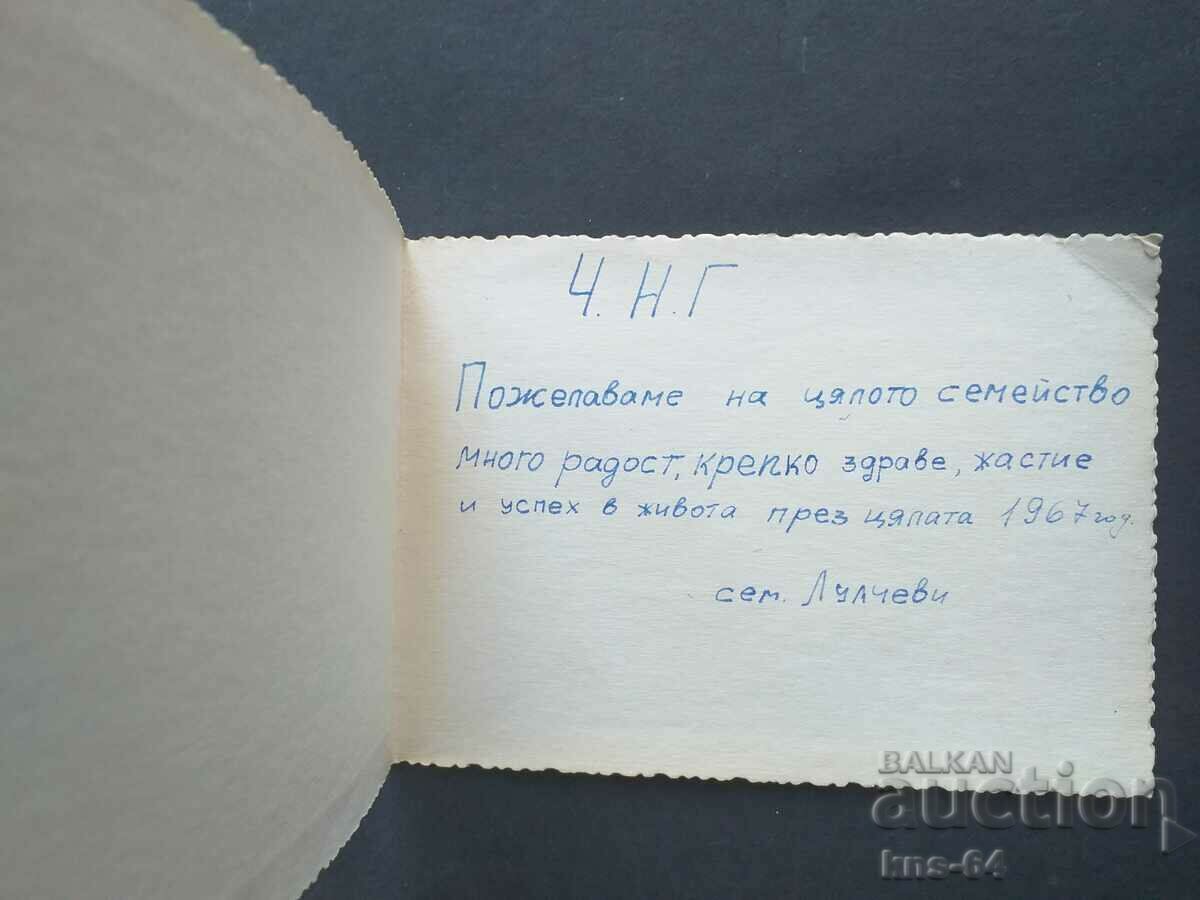 Ч. Н. Г
Пожелаваме на цялото семейство
много радост, крепко здраве, жастие
и успех в живота през цялата 1967 год.
сем. Лулчеви
BALKAN
auction
kns-64